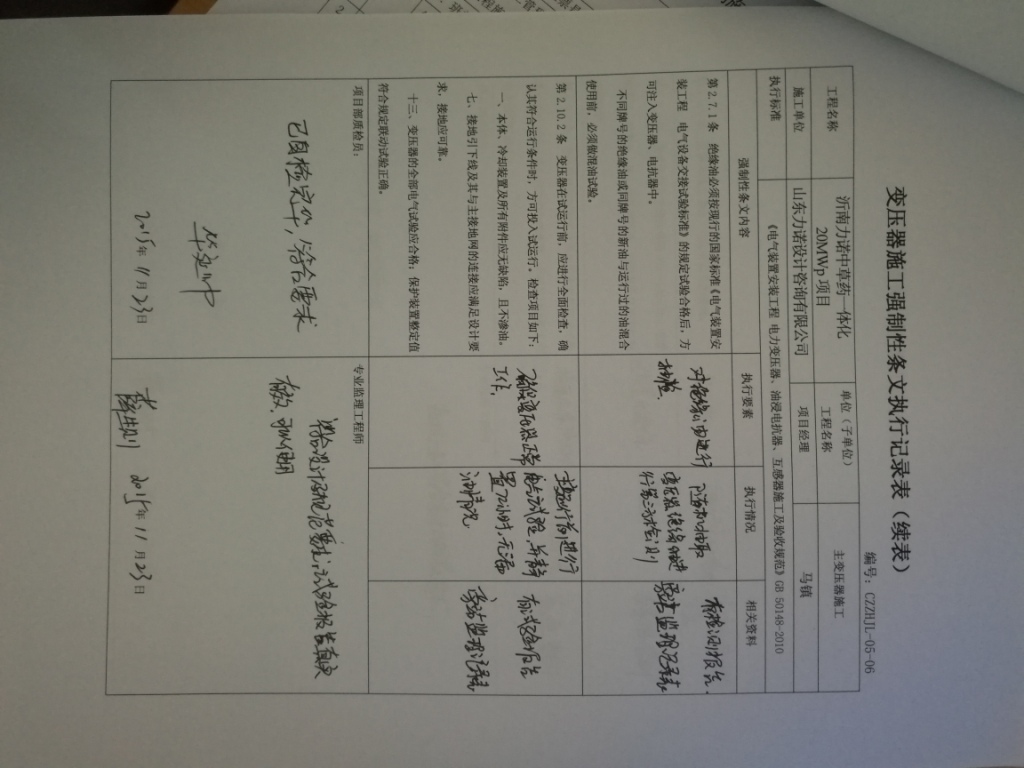 变压器施工强制性条文执行记录表（续表）
编号：CZZHJL-05-06
工程名称
沂南力诺中草药一体化
20MWp 项目
单位（子单位）
工程名称
主变压器施工
施工单位
山东力诺设计咨询有限公司
项目经理
马镇
执行标准
《电气装置安装工程 电力变压器、油浸电抗器、互感器施工及验收规范》GB 50148-2010
强制性条文内容
执行要素
执行情况
相关资料
第 2.7.1 条 绝缘油必须按现行的国家标准《电气装置安
装工程 电气设备交接试验标准》的规定试验合格后，方
可注入变压器、电抗器中。
不同牌号的绝缘油或同牌号的新油与运行过的油混合
使用前，必须做混油试验。
对绝缘油进行
第 2.10.2 条 变压器在试运行前，应进行全面检查，确
认其符合运行条件时，方可投入试运行。检查项目如下：
一、本体、冷却装置及所有附件应无缺陷，且不渗油。
七、接地引下线及其与主接地网的连接应满足设计要
求，接地应可靠。
十三、变压器的全部电气试验应合格；保护装置整定值
符合规定联动试验正确。
确保变压器正常
工作。
有试验报告
项目部质检员：
已自检完毕，符合要求
2015年 11月 23日
专业监理工程师
有效，可以使用
2015年 11月 23日